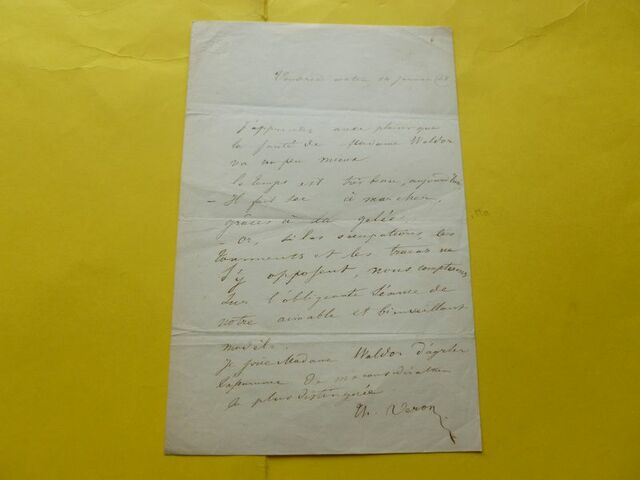 Vendredi matin 14 janvier
J'apprends avec plaisir que
la santé de Madame Waldor
va un peu mieux
le temps est très beau, aujourd'hui
- Il fait sec à marcher,
grâces à la gelée.
- Or, si les
et les tracas ne
s'y opposent, nous comptons
sur l'obligeante séance de
notre aimable et bienveillant
modèle.
Je prie Madame Waldor d'agréer
l'expression de ma considération
la plus distinguée
Th. Veron